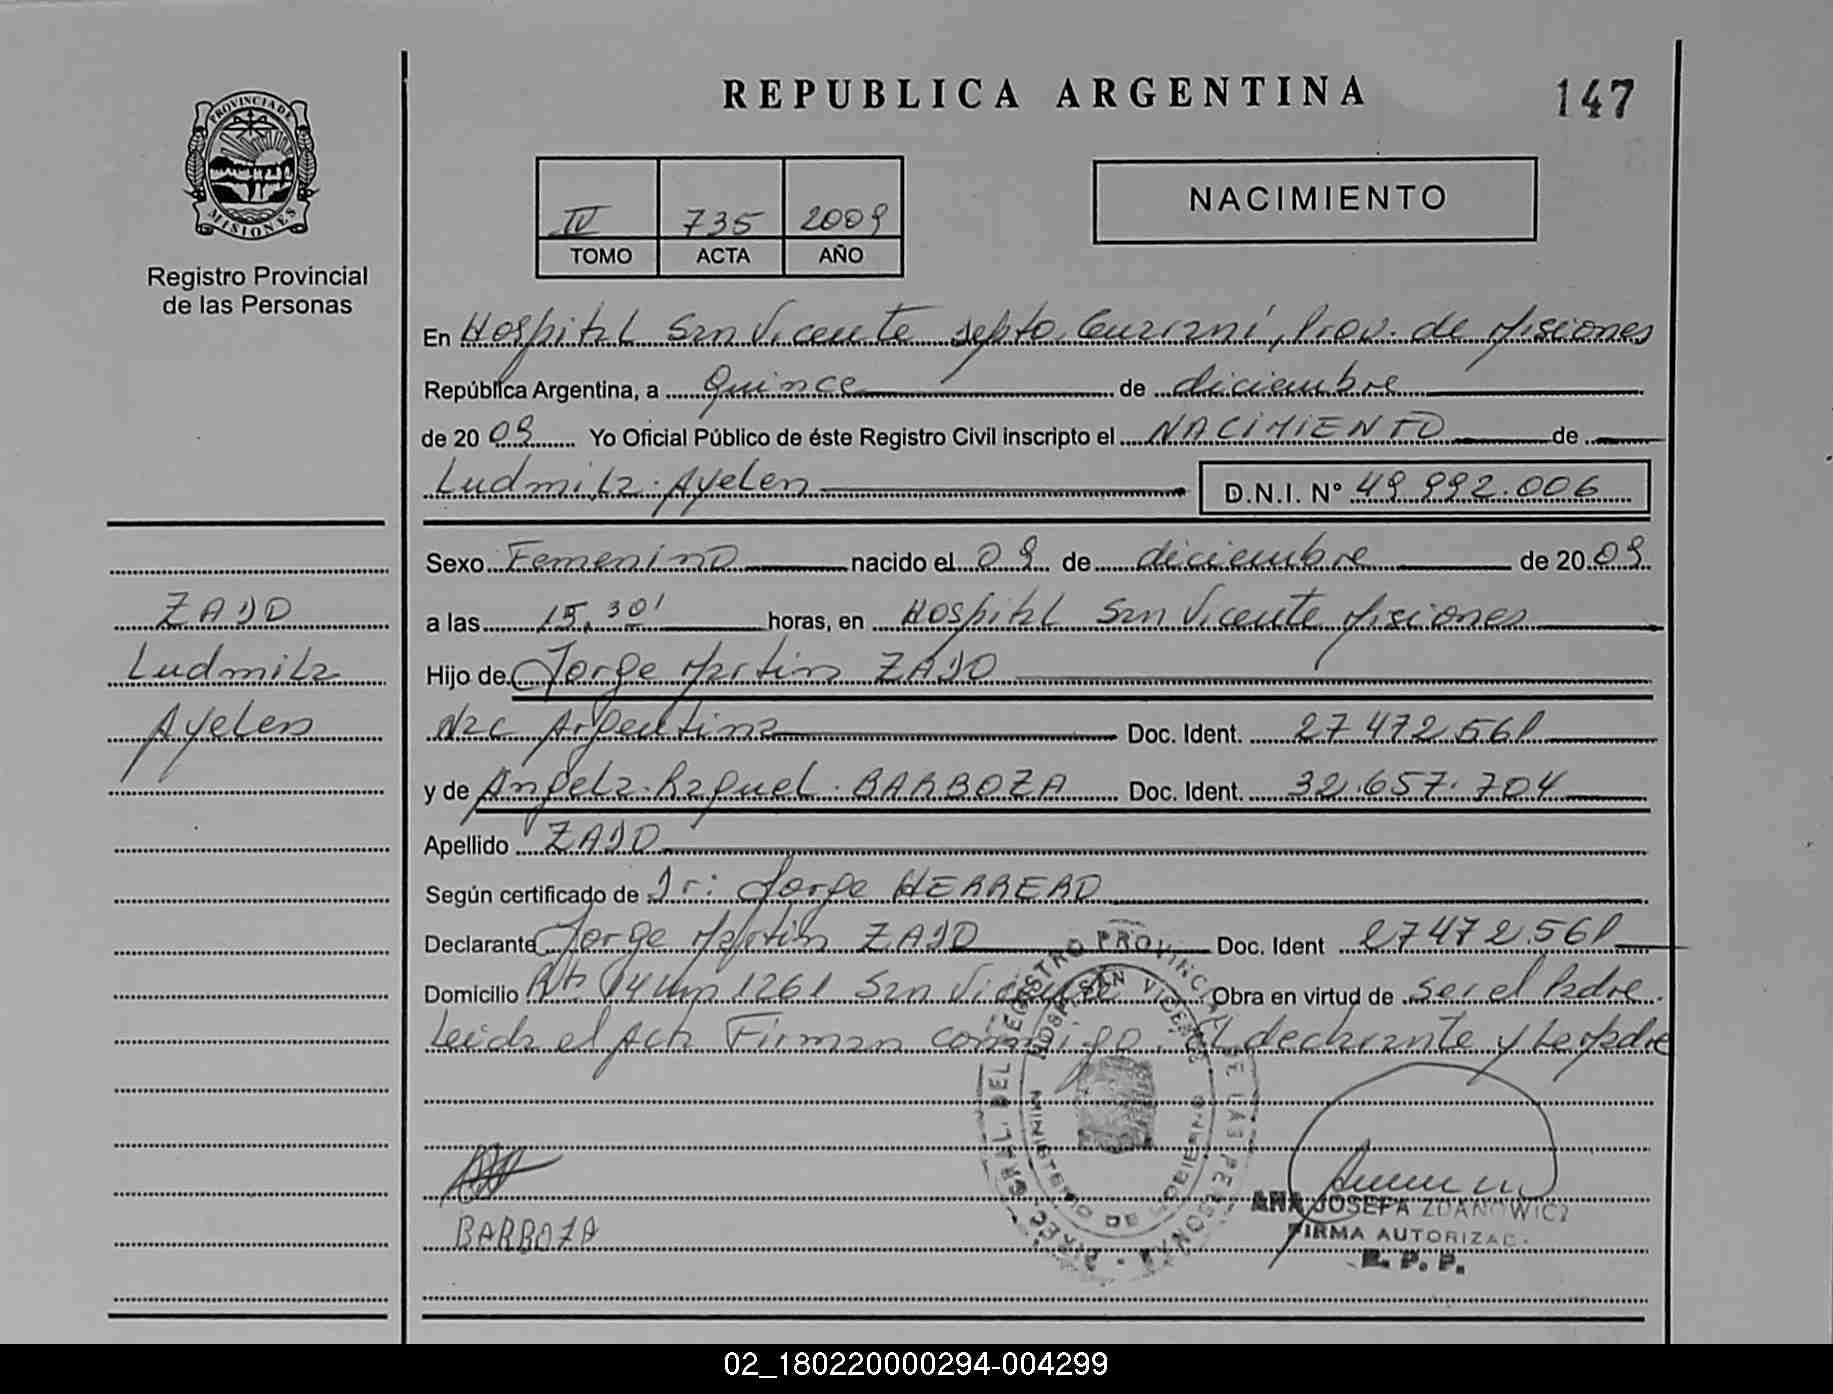 REPUBLICA ARGENTINA
147
PROVINCIA DE MISIONES
Registro Provincial
de las Personas
IV 735 2009
TOMO ACTA AÑO
NACIMIENTO
En Hospital San Vicente Depto. Guaraní, Prov. de Misiones
República Argentina, a Quince de diciembre
de 2009 Yo Oficial Público de éste Registro Civil inscripto el NACIMIENTO de
Ludmila Ayelen D.N.I. Nº 49.992.006
Sexo Femenino nacido el 09 de diciembre de 2009
a las 15,30' horas, en Hospital San Vicente Misiones
Hijo de Jorge Martin
Nac Argentina Doc. Ident. 27472561
y de Angela Raquel BARBOZA Doc. Ident. 32.657.704
Apellido
Según certificado de Dr: Jorge HERRERO
Declarante Jorge Martin Doc. Ident 27472561
Domicilio Rta 14 km 1261 San Vicente Obra en virtud de ser el Padre.
Leida el Acta Firman conmigo El declarante y la Madre
Ludmila
Ayelen
BARBOZA
DIREC. GRAL. DEL REGISTRO PROVINCIAL DE LAS PERSONAS
HOSP. SAN VICENTE
MINISTERIO DE GOBIERNO
ANA JOSEFA ZDANOWICZ
FIRMA AUTORIZAD
R. P. P.
02_180220000294-004299